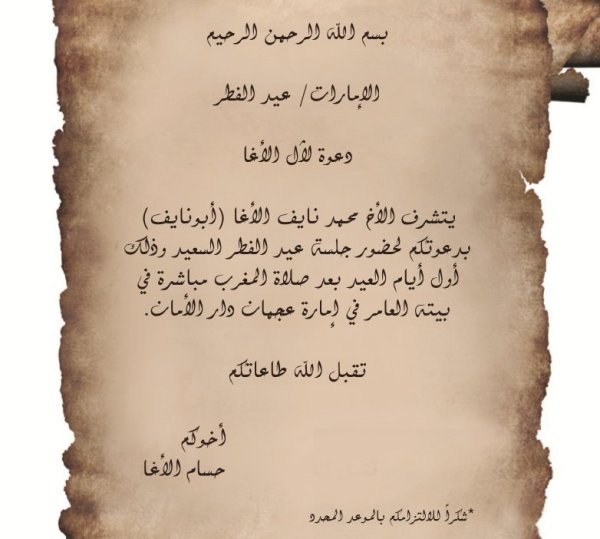 بسم الله الرحمن الرحيم
الإمارات/ عيد الفطر
دعوة لآل الأغا
يتشرف الأخ محمد نايف الأغا (أبونايف)
بدعوتكم لحضور جلسة عيد الفطر السعيد وذلك
أول أيام العيد بعد صلاة المغرب مباشرة في
بيته العامر في إمارة عجمان دار الأمان.
تقبل الله طاعاتكم
أخوكم
حسام الأغا
*شكراً للالتزامكم بالموعد المحدد